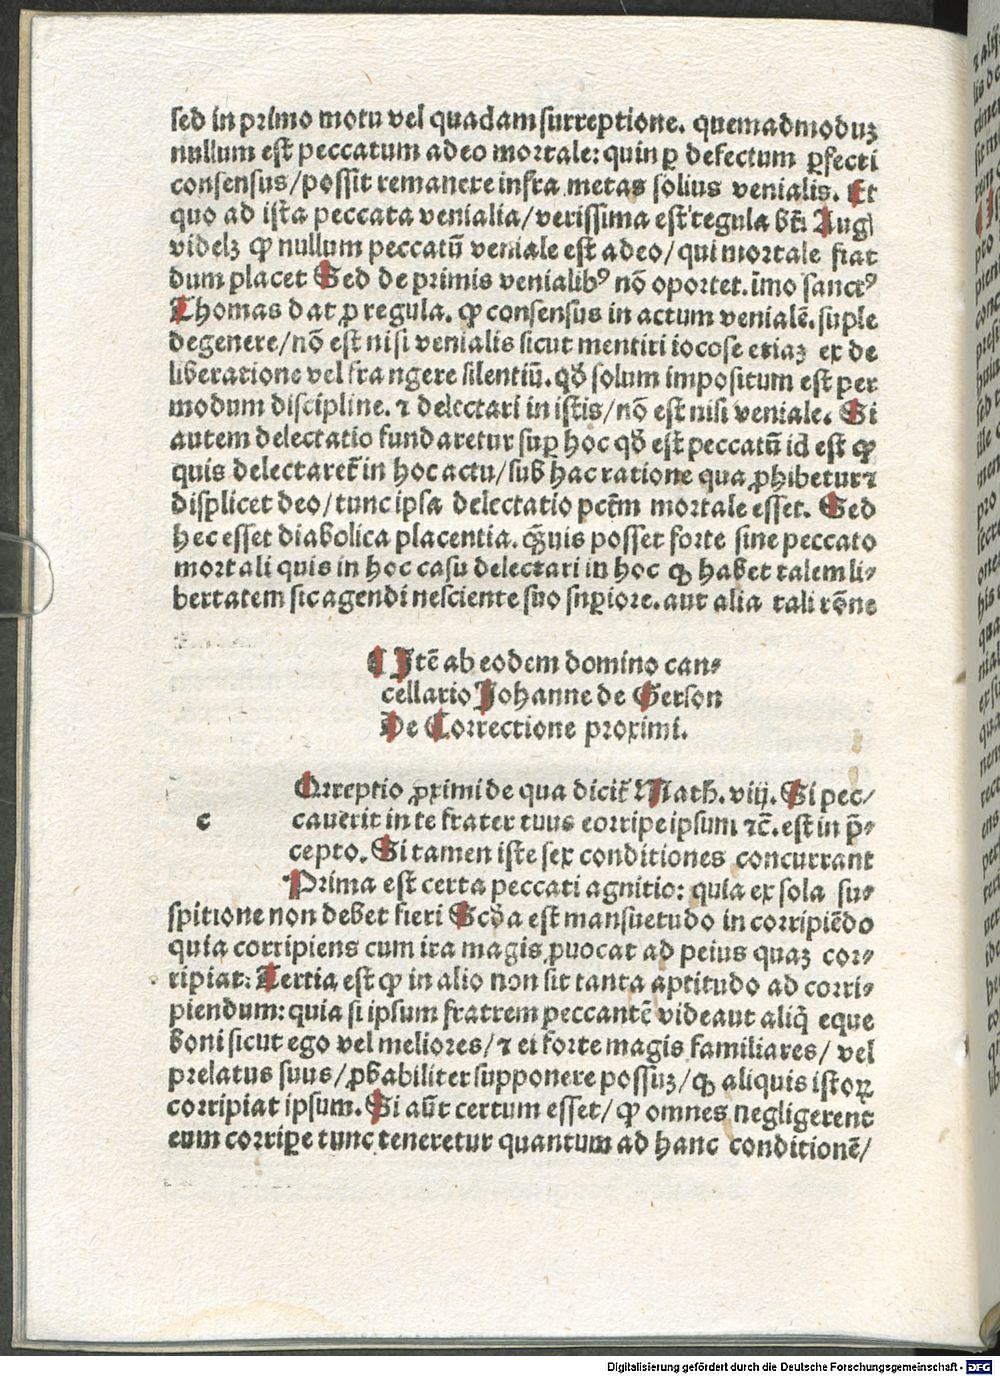 sed in primo motu vel quadam surreptione. quemadmoduꝫ
nullum est peccatum adeo mortale: quin ꝑ defectum ꝑfecti
consensus/possit remanere infra metas solius venialis. Et
quo ad ista peccata venialia/verissima est regula bt̄i Augꝰ
videlꝫ ꝙ nullum peccatū veniale est adeo/qui mortale fiat
dum placet Sed de primis venialibꝰ nō oportet. imo sanctꝰ
Thomas dat ꝓ regula. ꝙ consensus in actum venialē. suple
de genere/nō est nisi venialis sicut mentiri iocose etiaꝫ ex de
liberatione vel frangere silentiū. qđ solum impositum est per
modum discipline. ⁊ delectari in istis/nō est nisi veniale. Si
autem delectatio fundaretur suꝑ hoc qđ est peccatū id est ꝙ
quis delectaret᷑ in hoc actu/sub hac ratione qua ꝓhibetur ⁊
displicet deo/tunc ipsa delectatio pctm̄ mortale esset. Sed
hec esset diabolica placentia. qͣ̄uis posset forte sine peccato
mortali quis in hoc casu delectari in hoc ꝙ habet talem li⸗
bertatem sic agendi nesciente suo suꝑiore. aut alia tali rōne
¶ Itē ab eodem domino can⸗
cellario Johanne de Gerson
De Correctione proximi.
Orreptio ꝓximi de qua dicit᷑ Math. viij. Si pec/
c cauerit in te frater tuus corripe ipsum ⁊c̄. est in p̄⸗
cepto. Si tamen iste sex conditiones concurrant
Prima est certa peccati agnitio: quia ex sola su⸗
spitione non debet fieri Scđa est mansuetudo in corripiēdo
quia corripiens cum ira magis ꝓuocat ad peius quaꝫ cor⸗
ripiat: Tertia est ꝙ in alio non sit tanta aptitudo ad corri⸗
piendum: quia si ipsum fratrem peccantē videant aliq̄ eque
boni sicut ego vel meliores/⁊ ei forte magis familiares/ vel
prelatus suus/ꝓbabiliter supponere possuꝫ/ꝙ aliquis istoꝝ
corripiat ipsum. Si aūt certum esset/ꝙ omnes negligerent
eum corriꝑe tunc teneretur quantum ad hanc conditionē/
Digitalisierung gefördert durch die Deutsche Forschungsgemeinschaft - DFG